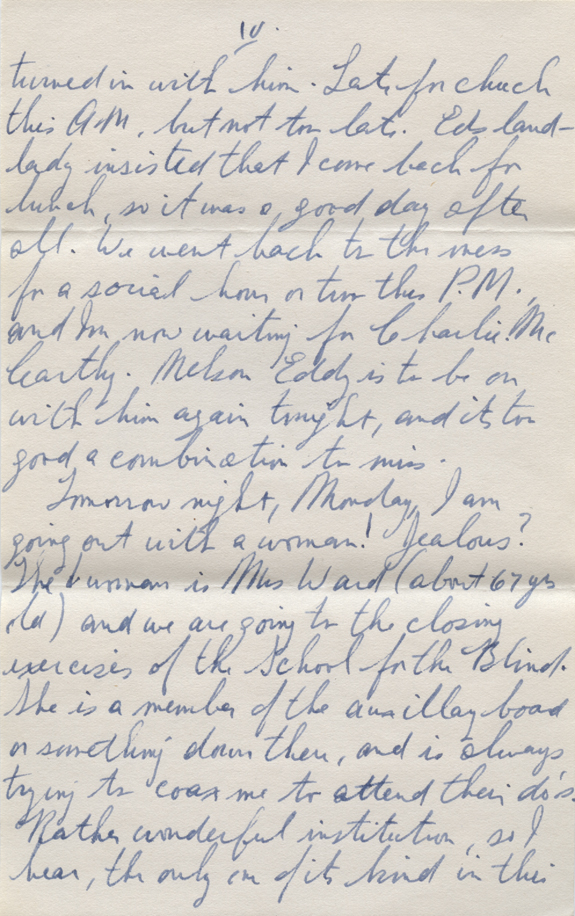 IV.
turned in with him. Late for chuch
this A.M, but not too late. Eds land-
lady insisted that I come back for
lunch, so it was a good day after
all. We went back to the mess
for a social hour or two this P.M.,
and Im now waiting for Charlie Mc
Carthy. Nelson Eddy is to be on
with him again tonight, and its too
good a combination to miss.
Tomorrow night, Monday, I am
going out with a woman! Jealous?
The woman is Mrs Ward (about 67 yrs
old) and we are going to the closing
exercises of the School for the Blind.
She is a member of the auxillay board
or something down there, and is always
trying to coax me to attend their do's.
Rather wonderful institution, so I
hear, the only one of its kind in this